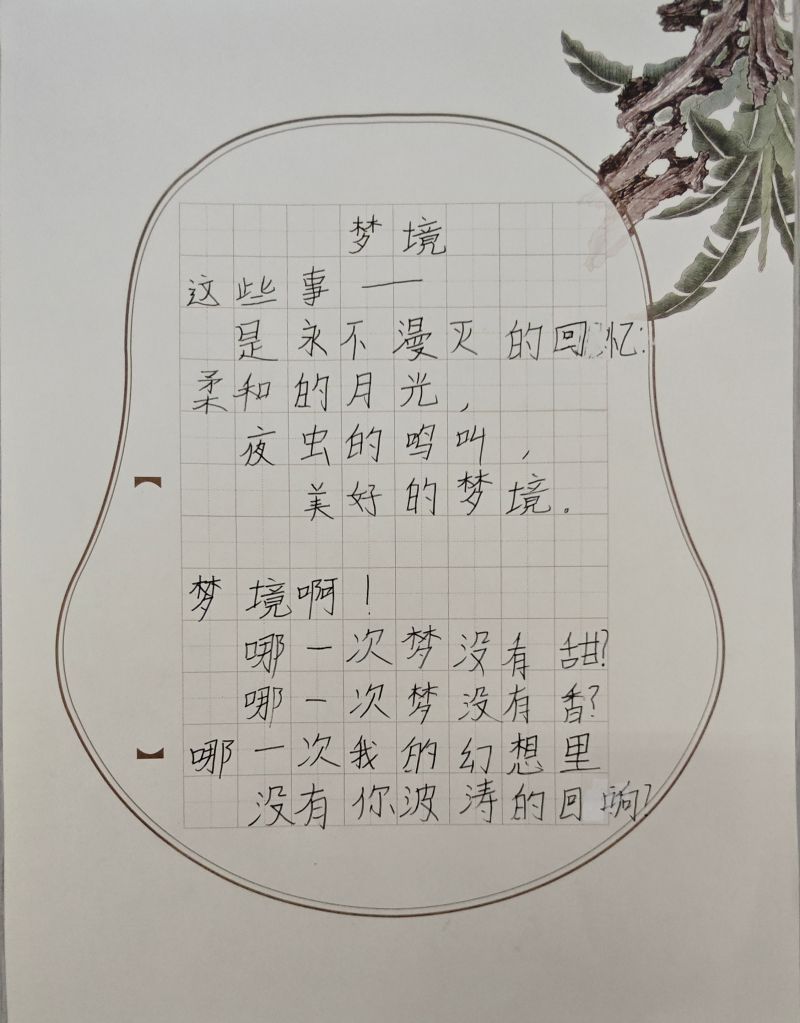 梦境
这些事——
是永不漫灭的回忆:
柔和的月光,
夜虫的鸣叫,
美好的梦境。
梦境啊!
哪一次梦没有甜?
哪一次梦没有香?
哪一次我的幻想里
没有你波涛的回响?